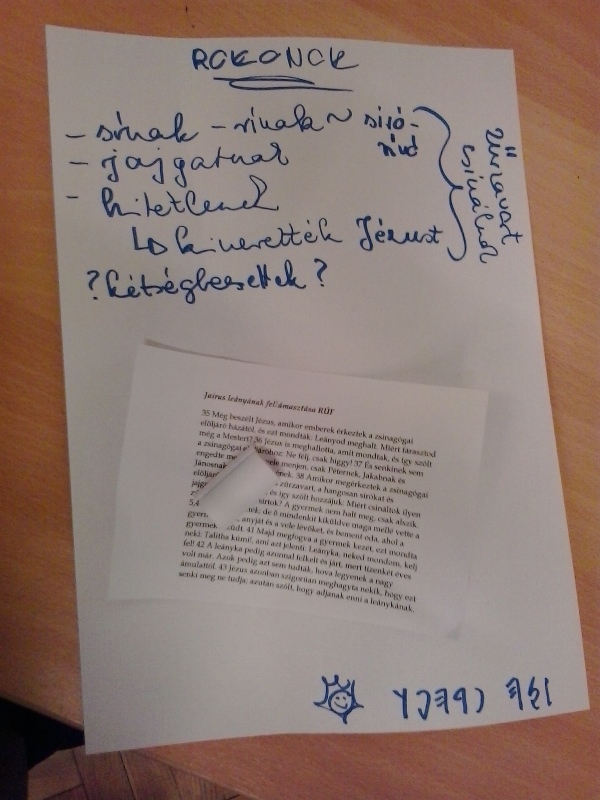 ROKONOK
- sírnak - rívnak ~ síró-
rívó
- jajgatnak
- hitetlenek
↳ kinevették Jézust
zűrzavart
csinálnak
? kétségbeesettek ?
Jairus leányának feltámasztása RÚF
35 Még beszélt Jézus, amikor emberek érkeztek a zsinagógai
elöljáró házától, és ezt mondták: Leányod meghalt. Miért fárasztod
még a Mestert? 36 Jézus is meghallotta, amit mondtak, és így szólt
a zsinagógai Ne félj, csak higgy! 37 És senkinek sem
engedte menjen, csak Péternek, Jakabnak és
Jánosnak 38 Amikor megérkeztek a zsinagógai
zűrzavart, a hangosan sírókat és
és így szólt hozzájuk: Miért csináltok ilyen
sírtok? A gyermek nem halt meg, csak alszik.
de ő mindenkit kiküldve maga mellé vette a
anyját és a vele lévőket, és bement oda, ahol a
gyermek 41 Majd megfogva a gyermek kezét, ezt mondta
neki: Talitha kúmi!, ami azt jelenti: Leányka, neked mondom, kelj
fel! 42 A leányka pedig azonnal felkelt és járt, mert tizenkét éves
volt már. Azok pedig azt sem tudták, hova legyenek a nagy
ámulattól. 43 Jézus azonban szigorúan meghagyta nekik, hogy ezt
senki meg ne tudja; azután szólt, hogy adjanak enni a leánykának.